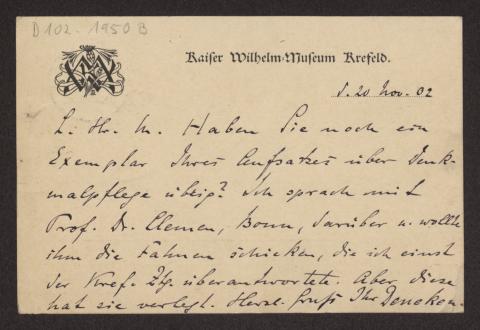 D102. 1950 B
Kaiser Wilhelm-Museum Krefeld.
d. 20 Nov. 02
L. Hr. M. Haben Sie noch ein
Exemplar Ihres Aufsatzes über Denk-
malpflege übrig? Ich sprach mit
Prof. Dr. Clemen, Bonn, darüber u. wollte
ihm die Fahnen schicken, die ich einst
der Kref. Ztg. überantwortete. Aber diese
hat sie verlegt. Herzl. Gruß Ihr Deneken.